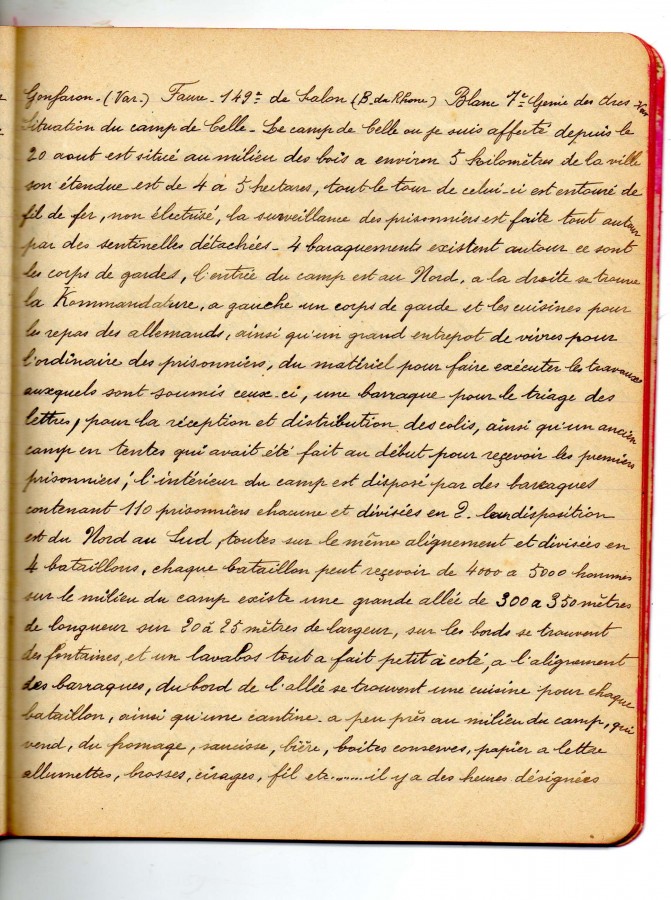 Gonfaron. (Var.) Faure. 149e de Salon (B. du Rhone.) Blanc 7e Genie des Arcs. Var
Situation du camp de Celle. Le camp de Celle ou je suis affecté depuis le
20 aout est situé au milieu des bois a environ 5 kilomètres de la ville
son étendue est de 4 à 5 hectares, tout le tour de celui-ci est entouré de
fil de fer, non électrisé, la surveillance des prisonniers est faite tout autour
par des sentinelles détachées. 4 baraquements existent autour ce sont
les corps de gardes, l'entrée du camp est au Nord, a la droite se trouve
la Kommandature, a gauche un corps de garde et les cuisines pour
les repas des allemands, ainsi qu'un grand entrepot de vivres pour
l'ordinaire des prisonniers, du matériel pour faire exécuter les travaux
auxquels sont soumis ceux-ci, une barraque pour le triage des
lettres, pour la réception et distribution des colis, ainsi qu'un ancien
camp en tentes qui avait été fait au début pour reçevoir les premiers
prisonniers; l'intérieur du camp est disposé par des baraques
contenant 110 prisonniers chacune et divisées en 2. leur disposition
est du Nord au Sud, toutes sur le même alignement et divisées en
4 bataillons, chaque bataillon peut reçevoir de 4000 a 5000 hommes
sur le milieu du camp existe une grande allée de 300 a 350 mètres
de longueur sur 20 à 25 mètres de largeur, sur les bords se trouvent
des fontaines, et un lavabos tout a fait petit à coté, a l'alignement
des barraques, du bord de l'allée se trouvent une cuisine pour chaque
bataillon, ainsi qu'une cantine a peu près au milieu du camp, qui
vend, du fromage, saucisse, bière, boites conserves, papier a lettre
allumettes, brosses, cirages, fil etc....... il y a des heures désignées